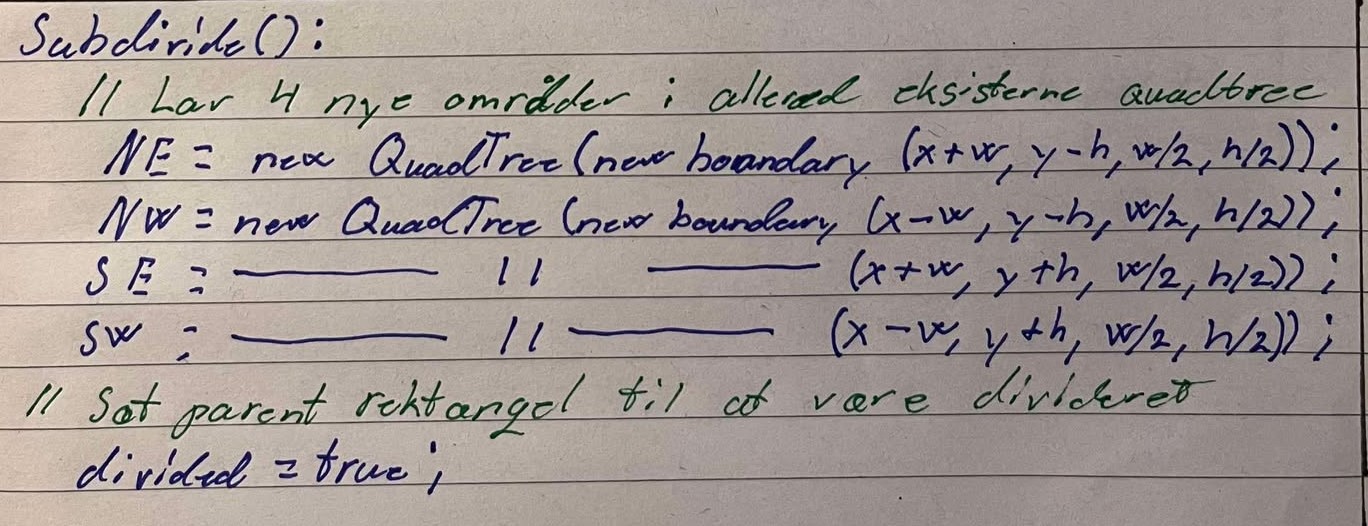 Subdivide():
// Lav 4 nye områder i allered eksisterne quadtree
NE = new QuadTree(new boundary (x+w, y-h, w/2, h/2));
NW = new QuadTree (new boundary (x-w, y-h, w/2, h/2));
SE = —— // —— (x+w, y+h, w/2, h/2));
SW = —— // —— (x-w, y+h, w/2, h/2));
// Sæt parent rektangel til at være divideret
divided = true;